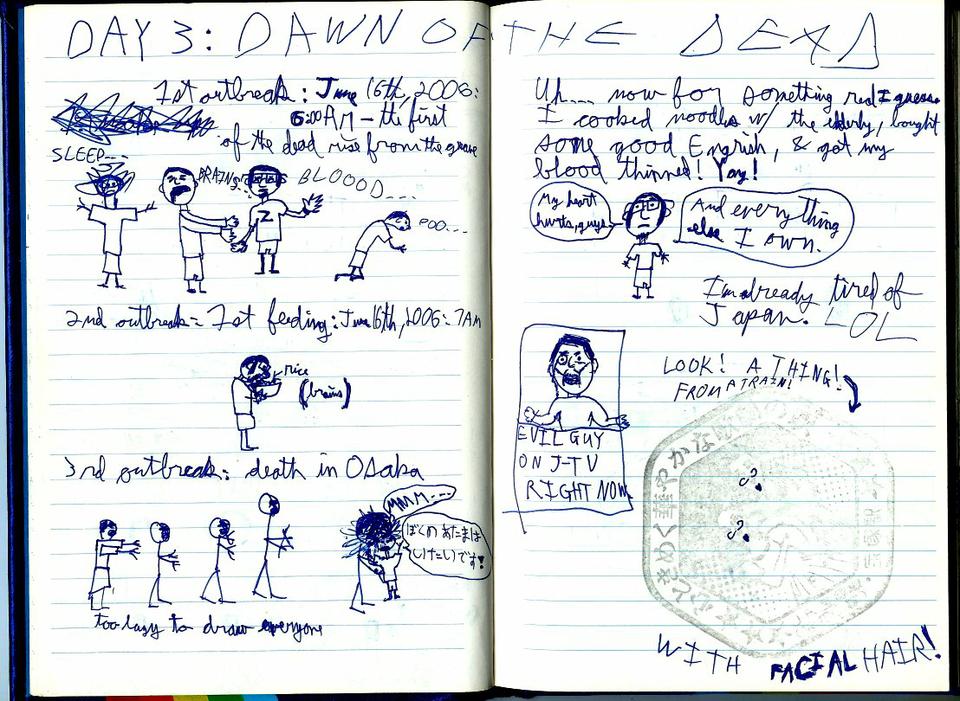 DAY 3: DAWN OF THE DEAD
1st outbreak: June 16th, 2006:
6:00 AM - the first
of the dead rise from the grave
SLEEP...
BRAINS
BLOOOD...
POO...
2nd outbreak: 1st feeding: June 16th, 2006: 7AM
rice
(brains)
3rd outbreak: death in Osaka
MMM...
ぼくの あたまは
いたいです!
too lazy to draw everyone
Uh.... now for something real I guess.
I cooked noodles w/ the elderly, bought
some good Engrish, & got my
blood thinned! Yay!
My heart
hurts, guys.
And everything
else I own.
I'm already tired of
Japan. LOL
LOOK! A THING!
FROM A TRAIN!
EVIL GUY
ON J-TV
RIGHT NOW
WITH FACIAL HAIR!